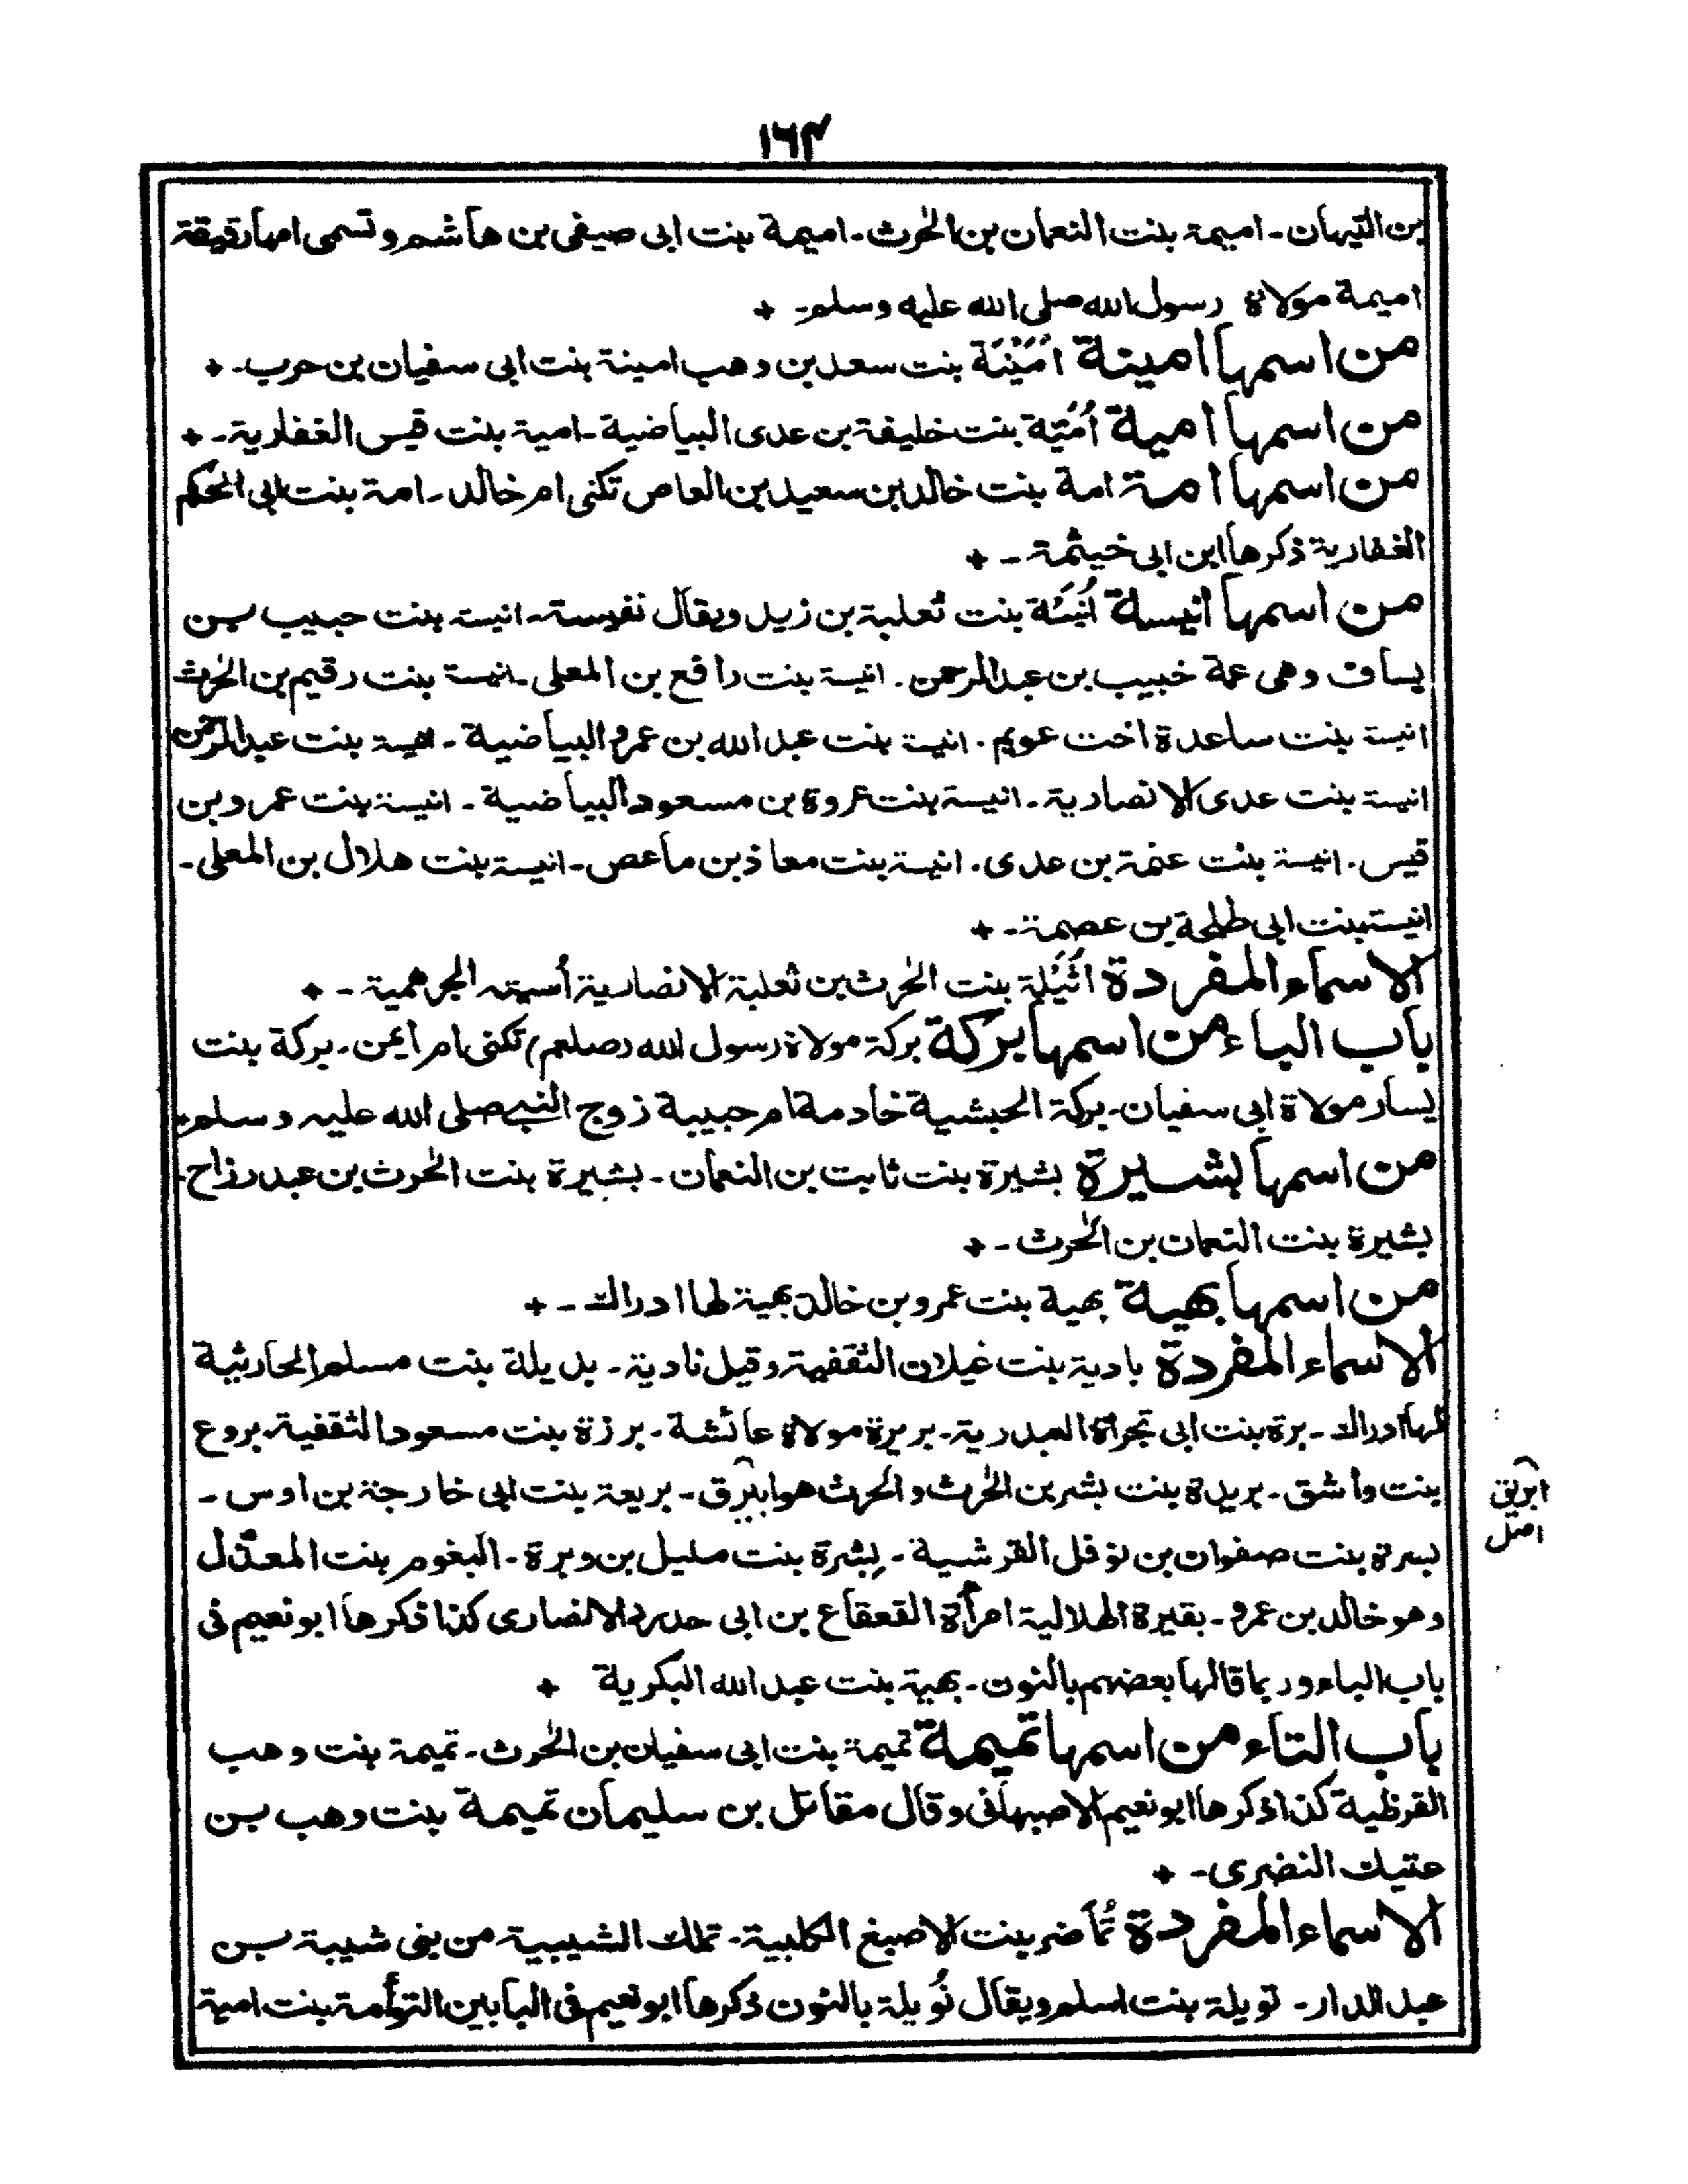 ١٦٤
بن التيهان - اميمة بنت النعمان بن الحٰرث - اميمة بنت ابى صيفى بن هاشم وتسمى امها رقيقة
اميمة مولاة رسول الله صلى الله عليه وسلم - +
من اسمها امينة اُمَيْنَة بنت سعد بن وهب امينة بنت ابى سفيان بن حرب - +
من اسمها امية اُمَيّة بنت خليفة بن عدى البياضية - امية بنت قيس الغفارية - +
من اسمها امة امة بنت خالد بن سعيد بن العاص تكنى ام خالد - امة بنت ابى الحكم
الغفارية ذكرها ابن ابى خيثمة - +
من اسمها انيسة اُنَيْسَة بنت ثعلبة بن زيد ويقال نفيسة - انيسة بنت حبيب بن
يساف وهى عمة خبيب بن عبد الرحمن - انيسة بنت رافع بن المعلى - انيسة بنت رقيم بن الحٰرث
انيسة بنت ساعدة اخت عويم - انيسة بنت عبد الله بن عمرو البياضية - انيسة بنت عبد الرحمن
انيسة بنت عدى الانصارية - انيسة بنت عروة بن مسعود البياضية - انيسة بنت عمرو بن
قيس - انيسة بنت عنمة بن عدى - انيسة بنت معاذ بن ماعص - انيسة بنت هلال بن المعلى -
انيسة بنت ابى طلحة بن عصمة - +
الاسماء المفردة اُثَيْلة بنت الحٰرث بن ثعلبة الانصارية أسية الجرهمية - +
باب الباء من اسمها بركة بركة مولاة رسول الله (صلعم) تكنى ام ايمن - بركة بنت
يسار مولاة ابى سفيان - بركة الحبشية خادمة ام حبيبة زوج النبى صلى الله عليه وسلم +
من اسمها بشيرة بشيرة بنت ثابت بن النعمان - بشيرة بنت الحٰرث بن عبد رزاح -
بشيرة بنت النعمان بن الحٰرث - +
من اسمها بهية بهية بنت عمرو بن خالد بهية لها ادراك - +
الاسماء المفردة بادية بنت غيلان الثقفية وقيل نادية - بديلة بنت مسلم الحارثية
لها ادراك - برة بنت ابى تجراة العبدرية - بريرة مولاة عائشة - برزة بنت مسعود الثقفية - بروع
بنت واشق - بريدة بنت بشر بن الحٰرث والحٰرث هو ابيرق - بريعة بنت ابى خارجة بن اوس -
ابريق
اصل
بسرة بنت صفوان بن نوفل القرشية - بِشْرة بنت مليل بن وبرة - البغوم بنت المعذّل
وهو خالد بن عمرو - بقيرة الهلالية امرأة القعقاع بن ابى حدرد الانصارى كذا ذكرها ابو نعيم فى
باب الباء وربما قالها بعضهم بالنون - بهية بنت عبد الله البكرية +
باب التاء من اسمها تميمة تميمة بنت ابى سفيان بن الحٰرث - تميمة بنت وهب
القرظية كذا ذكرها ابو نعيم الاصبهانى وقال مقاتل بن سليمان تميمة بنت وهب بن
عتيك النضرى - +
الاسماء المفردة تُماضر بنت الاصبغ الكلبية - تملك الشيبية من بنى شيبة بن
عبد الدار - تويلة بنت اسلم ويقال نُويلة بالنون ذكرها ابو نعيم فى البابين التوأمة بنت امية